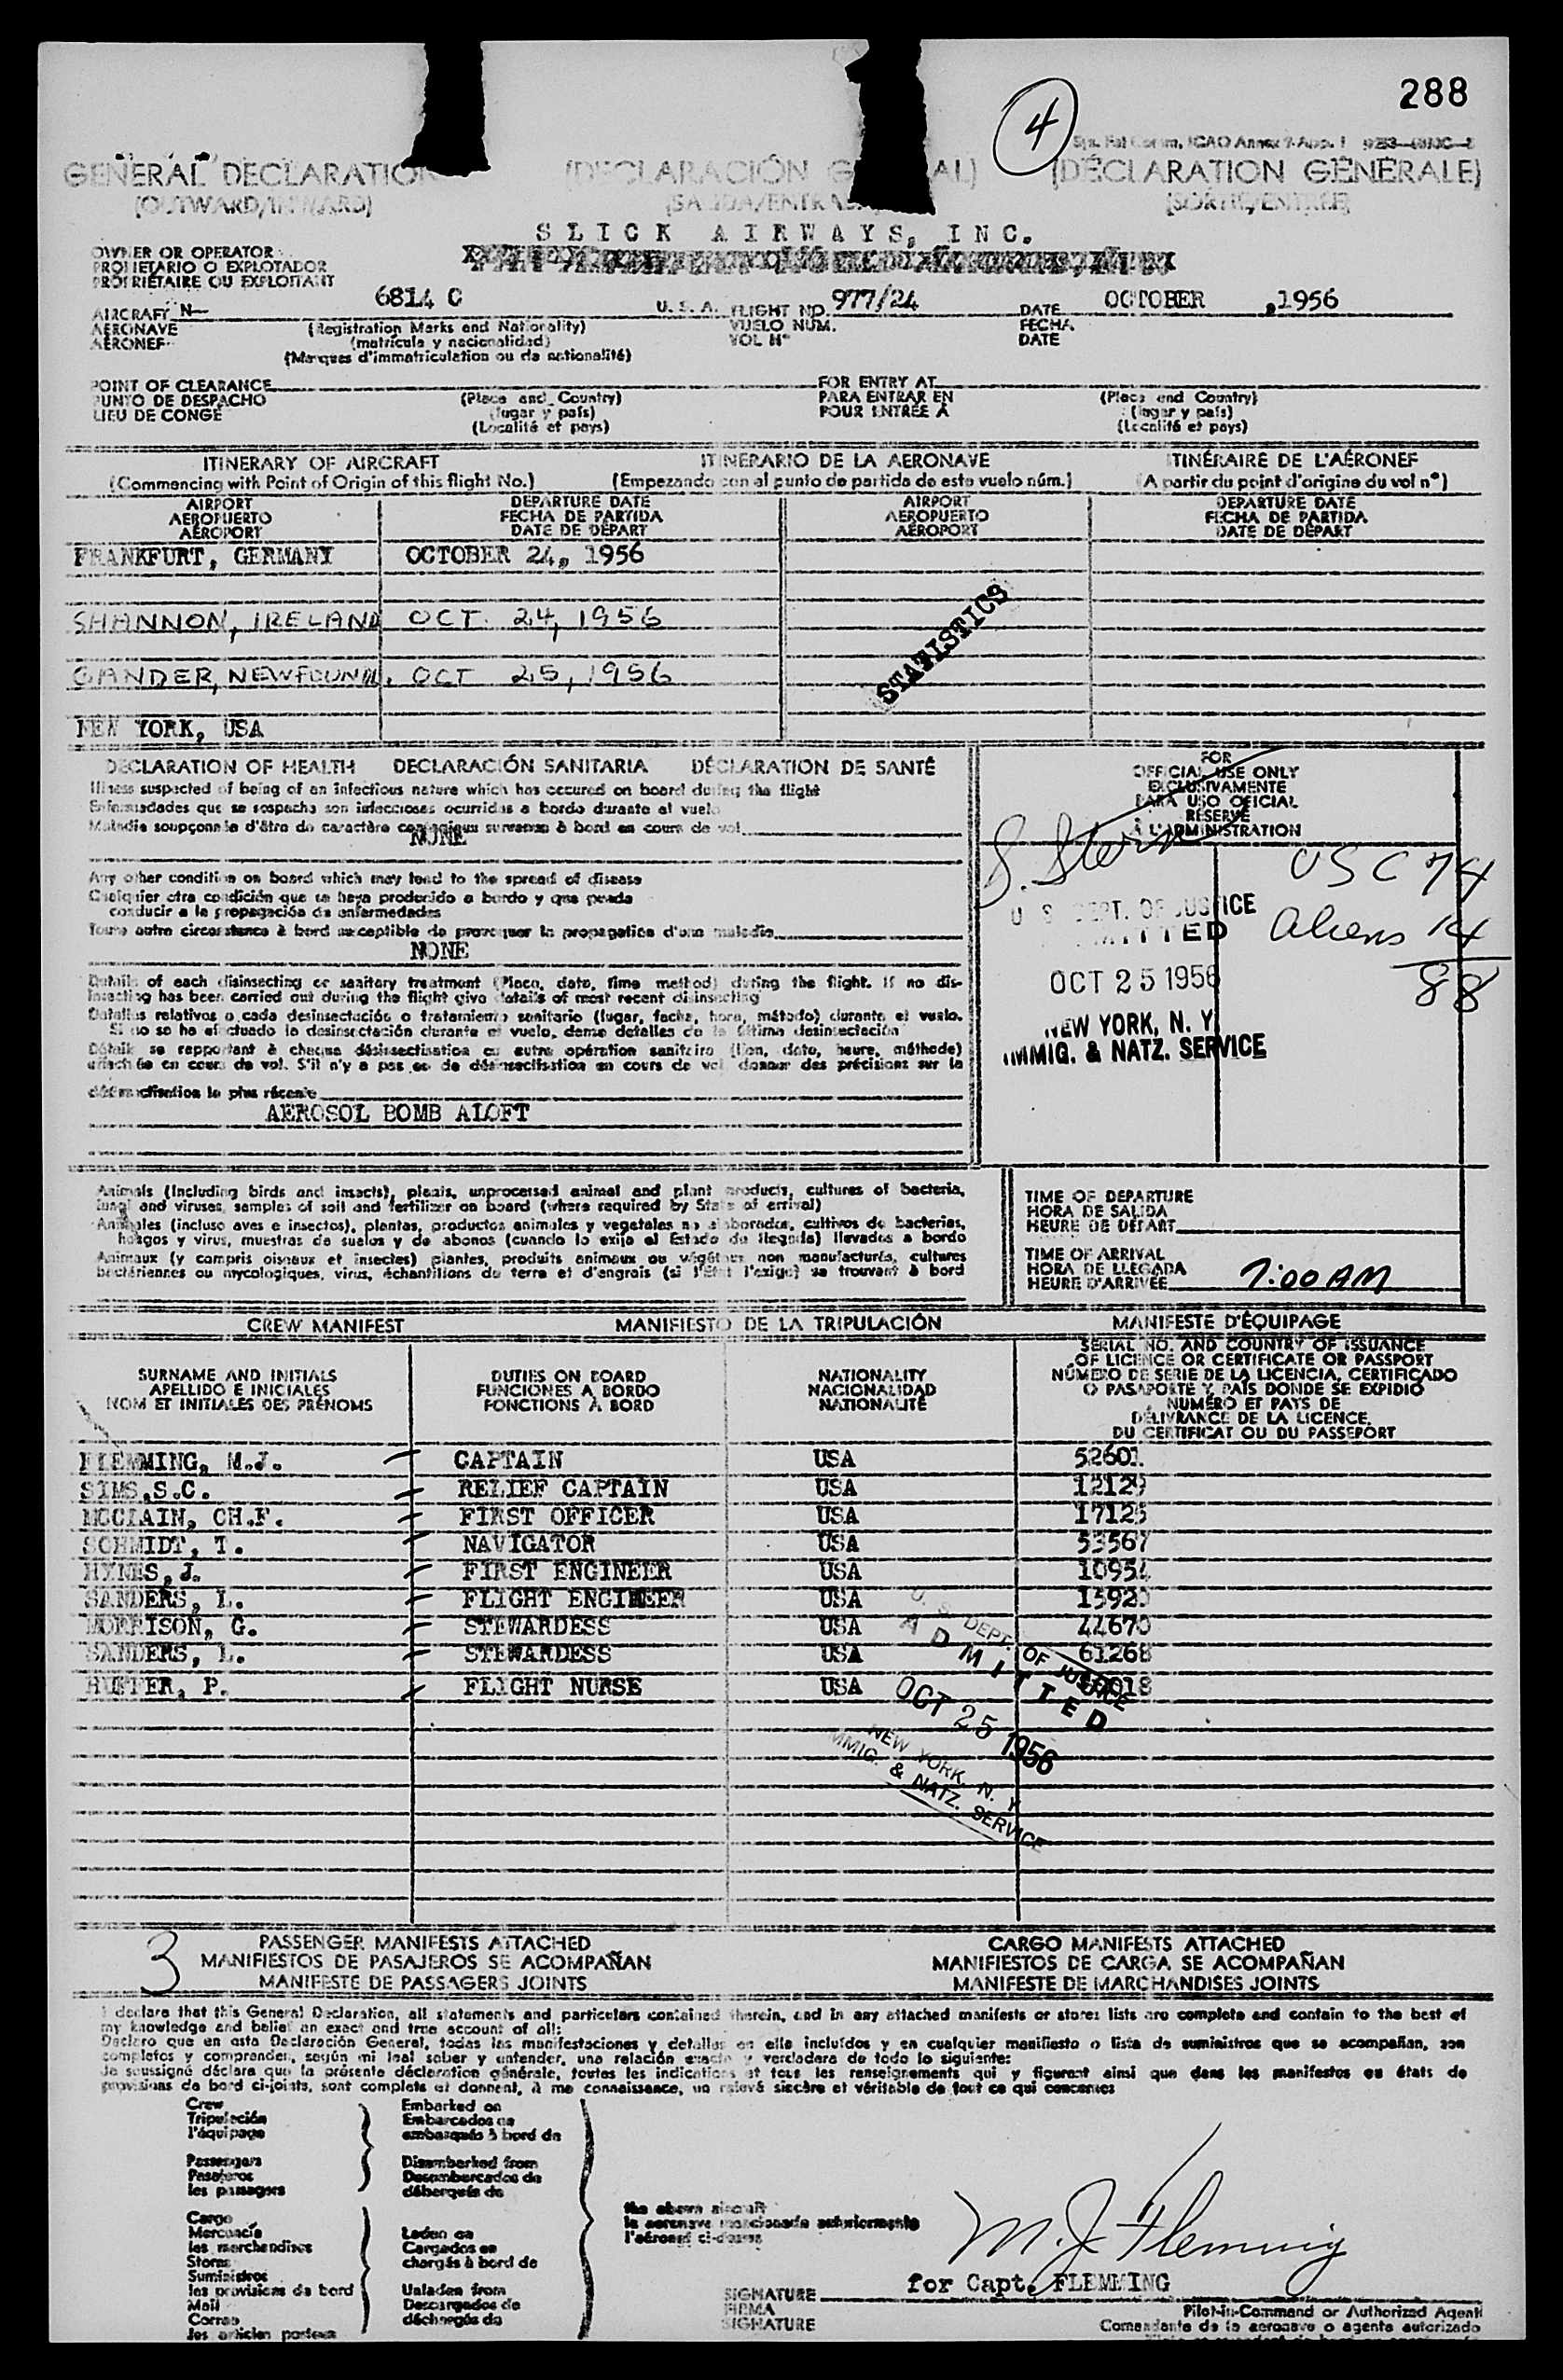 288
4
GENERAL DECLARATION
(OUTWARD/INWARD)
(DÉCLARATION GÉNÉRALE)
(SORTIE/ENTRÉE)
SLICK AIRWAYS, INC.
OWNER OR OPERATOR
PROPIETARIO O EXPLOTADOR
PROPRIÉTAIRE OU EXPLOITANT
AIRCRAFT N- 6814 C U. S. A. FLIGHT NO. 977/24 DATE OCTOBER ,1956
AERONAVE (Registration Marks and Nationality) VUELO NÚM. FECHA
AÉRONEF (matrícula y nacionalidad) VOL Nº DATE
(Marques d'immatriculation ou de nationalité)
POINT OF CLEARANCE FOR ENTRY AT
PUNTO DE DESPACHO (Place and Country) PARA ENTRAR EN (Place and Country)
LIEU DE CONGÉ (lugar y país) POUR ENTRÉE À (lugar y país)
(Localité et pays) (Localité et pays)
ITINERARY OF AIRCRAFT ITINERARIO DE LA AERONAVE ITINÉRAIRE DE L'AÉRONEF
(Commencing with Point of Origin of this flight No.) (Empezando con el punto de partida de este vuelo núm.) (A partir du point d'origine du vol nº)
AIRPORT DEPARTURE DATE AIRPORT DEPARTURE DATE
AEROPUERTO FECHA DE PARTIDA AEROPUERTO FECHA DE PARTIDA
AÉROPORT DATE DE DÉPART AÉROPORT DATE DE DÉPART
FRANKFURT, GERMANY OCTOBER 24, 1956
SHANNON, IRELAND OCT. 24, 1956
GANDER, NEWFOUND. OCT 25, 1956
NEW YORK, USA
STATISTICS
DECLARATION OF HEALTH DECLARACIÓN SANITARIA DÉCLARATION DE SANTÉ
Illness suspected of being of an infectious nature which has occured on board during the flight
Enfermedades que se sospecha son infecciosas ocurridas a bordo durante el vuelo
Maladie soupçonnée d'être de caractère contagieux survenue à bord en cours de vol
NONE
Any other condition on board which may lead to the spread of disease
Cualquier otra condición que se haya producido a bordo y que pueda
conducir a la propagación de enfermedades
Toute autre circonstance à bord susceptible de provoquer la propagation d'une maladie
NONE
Details of each disinsecting or sanitary treatment (Place, date, time method) during the flight. If no dis-
insecting has been carried out during the flight give details of most recent disinsecting
Detalles relativos a cada desinsectación o tratamiento sanitario (lugar, fecha, hora, método) durante el vuelo.
Si no se ha efectuado la desinsectación durante el vuelo, deme detalles de la última desinsectación
Détails se rapportant à chaque désinsectisation ou autre opération sanitaire (lieu, date, heure, méthode)
effectuée en cours de vol. S'il n'y a pas eu de désinsectisation en cours de vol donner des précisions sur la
désinsectisation la plus récente
AEROSOL BOMB ALOFT
FOR
OFFICIAL USE ONLY
EXCLUSIVAMENTE
PARA USO OFICIAL
RÉSERVÉ
À L'ADMINISTRATION
S. Stern
USC 74
Aliens 14
88
U S DEPT. OF JUSTICE
ADMITTED
OCT 25 1956
NEW YORK, N. Y.
IMMIG. & NATZ. SERVICE
Animals (Including birds and insects), plants, unprocessed animal and plant products, cultures of bacteria,
fungi and viruses, samples of soil and fertilizer on board (where required by State of arrival)
Animales (incluso aves e insectos), plantas, productos animales y vegetales no elaborados, cultivos de bacterias,
hongos y virus, muestras de suelos y de abonos (cuando lo exija el Estado de llegada) llevados a bordo
Animaux (y compris oiseaux et insectes) plantes, produits animaux ou végétaux non manufacturés, cultures
bactériennes ou mycologiques, virus, échantillons de terre et d'engrais (si l'État l'exige) se trouvant à bord
TIME OF DEPARTURE
HORA DE SALIDA
HEURE DE DÉPART
TIME OF ARRIVAL
HORA DE LLEGADA
HEURE D'ARRIVÉE 7:00 AM
CREW MANIFEST MANIFIESTO DE LA TRIPULACIÓN MANIFESTE D'ÉQUIPAGE
SURNAME AND INITIALS
APELLIDO E INICIALES
NOM ET INITIALES DES PRÉNOMS
DUTIES ON BOARD
FUNCIONES A BORDO
FONCTIONS À BORD
NATIONALITY
NACIONALIDAD
NATIONALITÉ
SERIAL NO. AND COUNTRY OF ISSUANCE
OF LICENCE OR CERTIFICATE OR PASSPORT
NÚMERO DE SERIE DE LA LICENCIA, CERTIFICADO
O PASAPORTE Y PAÍS DONDE SE EXPIDIÓ
NUMÉRO ET PAYS DE
DÉLIVRANCE DE LA LICENCE,
DU CERTIFICAT OU DU PASSEPORT
FLEMMING, M.J. CAPTAIN USA 52601
SIMS,S.C. RELIEF CAPTAIN USA 12129
MCCLAIN, CH.F. FIRST OFFICER USA 17125
SCHMIDT, T. NAVIGATOR USA 53567
HYNES,J. FIRST ENGINEER USA 10954
SANDERS, L. FLIGHT ENGINEER USA
MORRISON, G. STEWARDESS USA 44670
SANDERS, L. STEWARDESS USA 61268
HUFFER, P. FLIGHT NURSE USA
U. S. DEPT. OF JUSTICE
ADMITTED
OCT 25 1956
NEW YORK, N. Y.
IMMIG. & NATZ. SERVICE
3
PASSENGER MANIFESTS ATTACHED
MANIFIESTOS DE PASAJEROS SE ACOMPAÑAN
MANIFESTE DE PASSAGERS JOINTS
CARGO MANIFESTS ATTACHED
MANIFIESTOS DE CARGA SE ACOMPAÑAN
MANIFESTE DE MARCHANDISES JOINTS
I declare that this General Declaration, all statements and particulars contained therein, and in any attached manifests or stores lists are complete and contain to the best of
my knowledge and belief an exact and true account of all:
Declaro que en esta Declaración General, todas las manifestaciones y detalles en ella incluídos y en cualquier manifiesto o lista de suministros que se acompañan, son
completos y comprenden, según mi leal saber y entender, una relación exacta y verdadera de todo lo siguiente:
Je soussigné déclare que la présente déclaration générale, toutes les indications et tous les renseignements qui y figurent ainsi que dans les manifestes ou états de
provisions de bord ci-joints, sont complets et donnent, à ma connaissance, un relevé sincère et véritable de tout ce qui concerne:
Crew
Tripulación
l'équipage
Embarked on
Embarcados en
embarqués à bord de
Passengers
Pasajeros
les passagers
Disembarked from
Desembarcados de
débarqués de
Cargo
Mercancía
les marchandises
Stores
Suministros
les provisions de bord
Mail
Correo
les articles postaux
Laden on
Cargados en
chargés à bord de
Unladen from
Descargados de
déchargés de
the above aircraft
la aeronave mencionada anteriormente
l'aéronef ci-dessus
M. J. Flemming
for Capt. FLEMMING
SIGNATURE
FIRMA
SIGNATURE
Pilot-in-Command or Authorized Agent
Comandante de la aeronave o agente autorizado